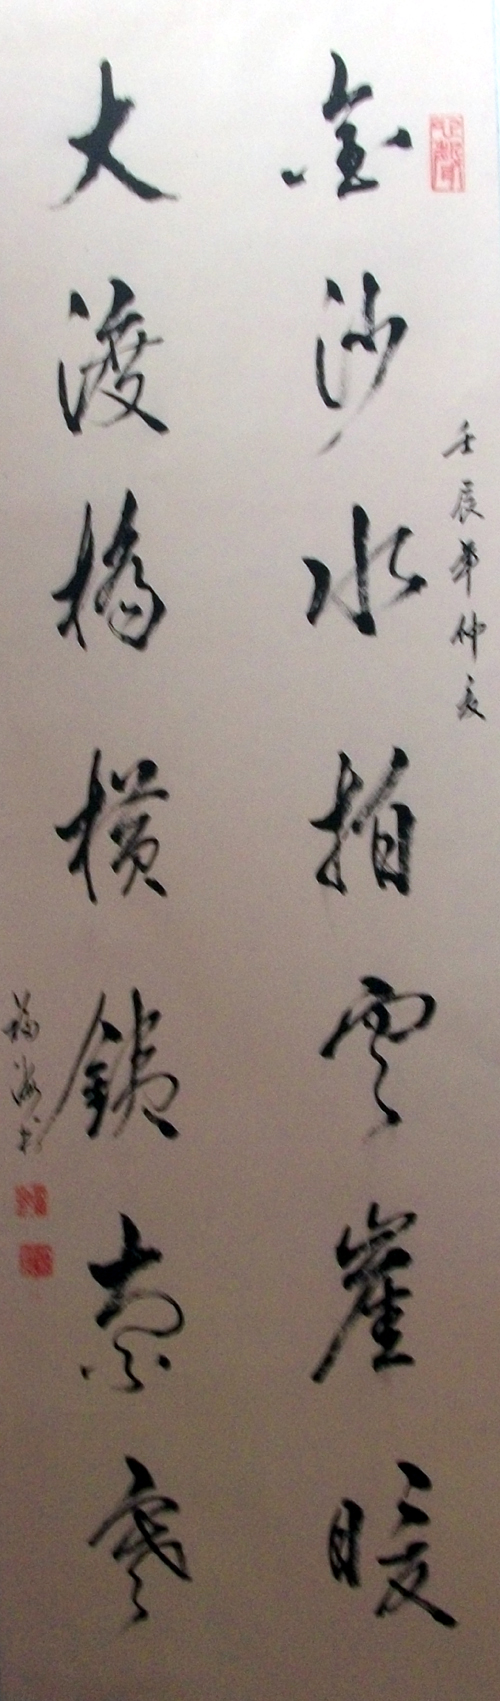 壬辰年仲夏
金沙水拍雲崖暖
大渡橋横鐵索寒
福海书